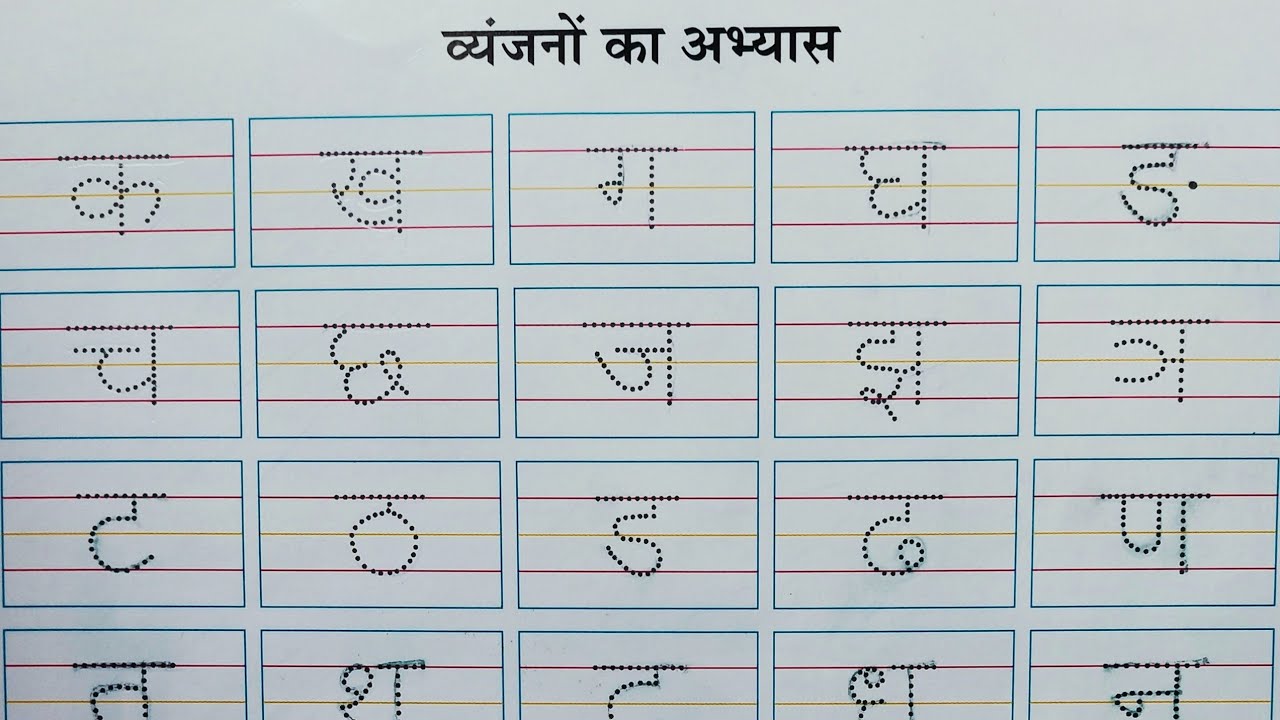 व्यंजनों का अभ्यास
क ख ग घ ङ
च छ ज झ ञ
ट ठ ड ढ ण
त थ द ध न